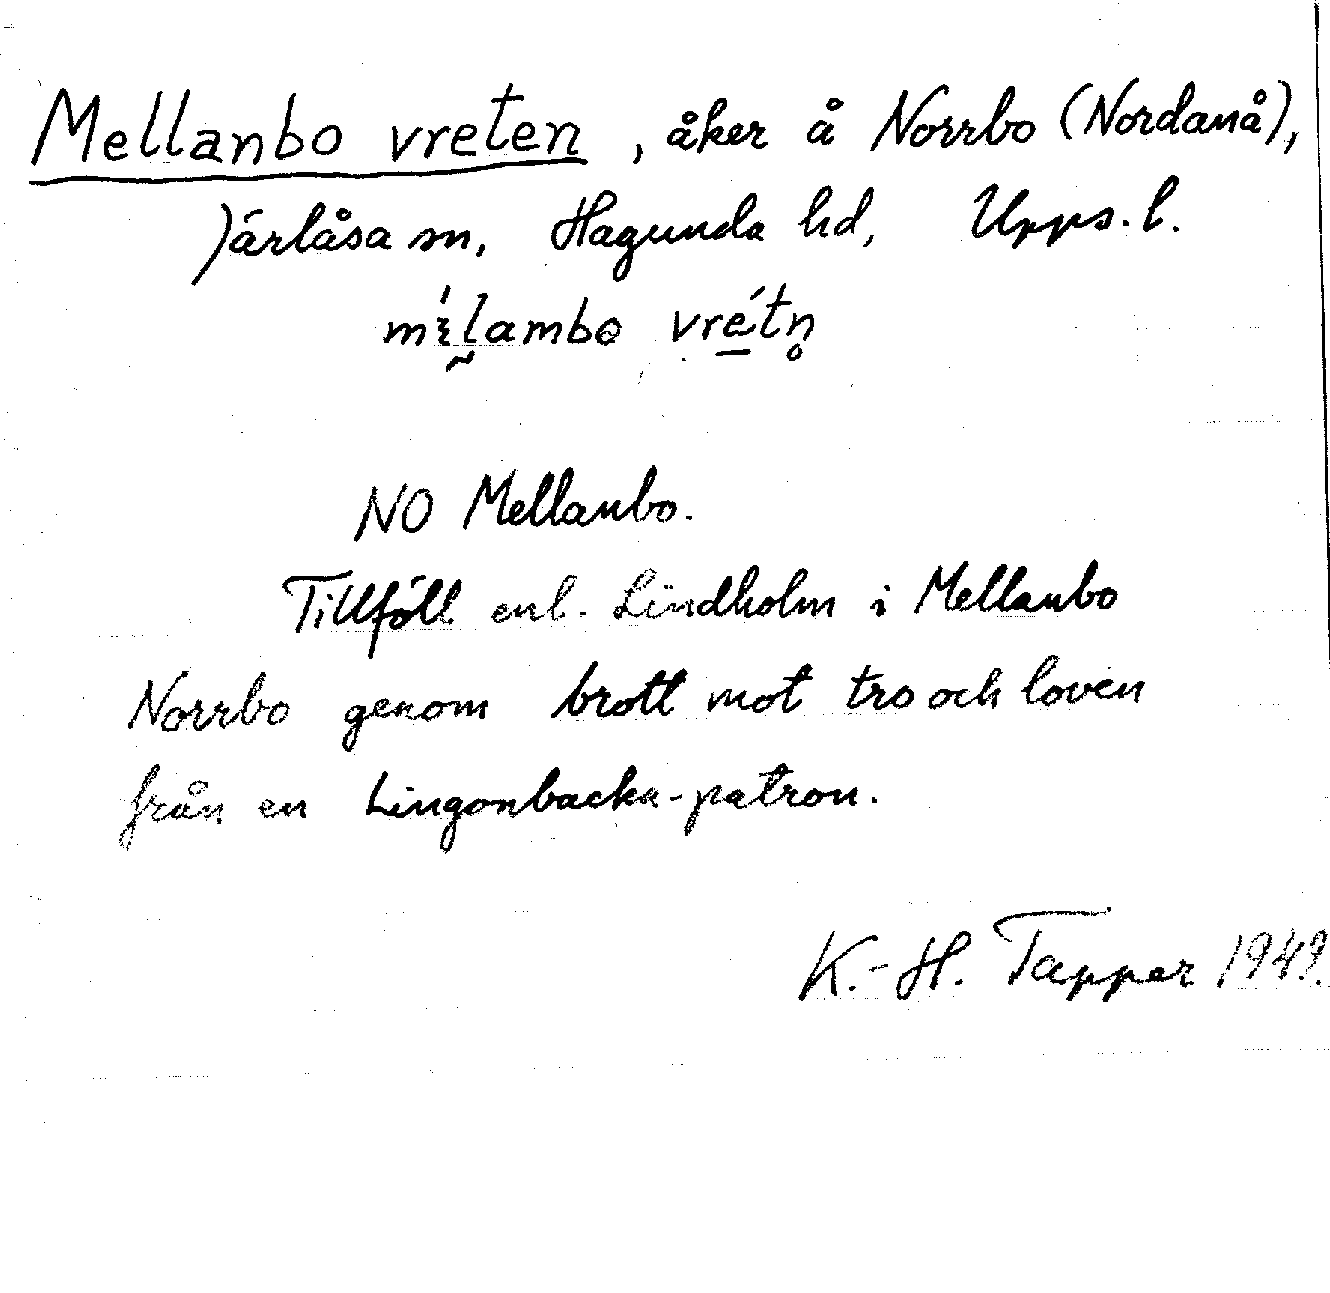 Mellanbo vreten, åker å Norrbo (Nordanå),
Järlåsa sn, Hagunda hd, Upps. l.
vré̲tn̥
NO Mellanbo.
Tillföll enl. Lindholm i Mellanbo
Norrbo genom brott mot tro och loven
från en Lingonbacka-patron.
K.-H. Tapper 1949.